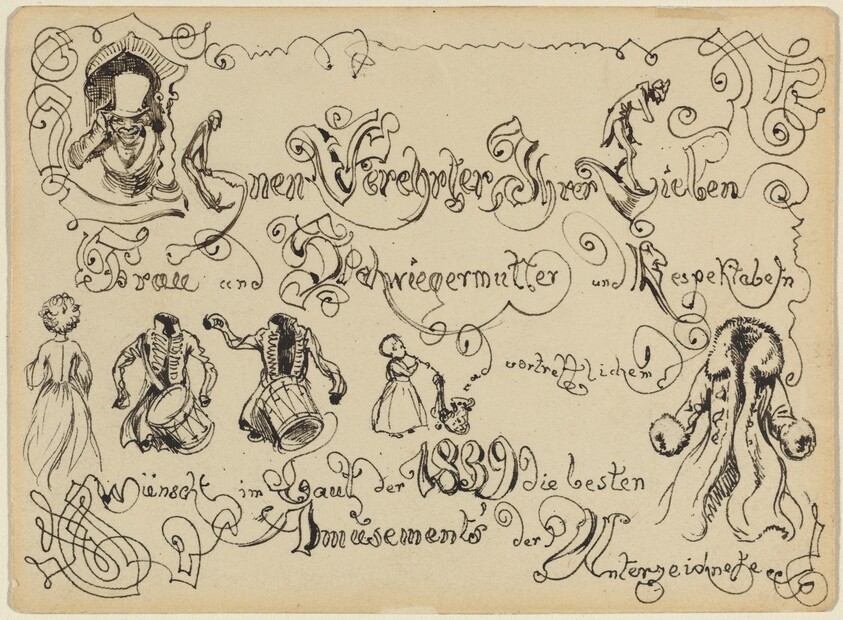 Ihnen Verehrter, Ihrer Lieben
Frau und Schwiegermutter und Respektabeln
und vortrefflichem
Wünscht im Lauf der 1839 die besten
Amusements der
Unterzeichnete